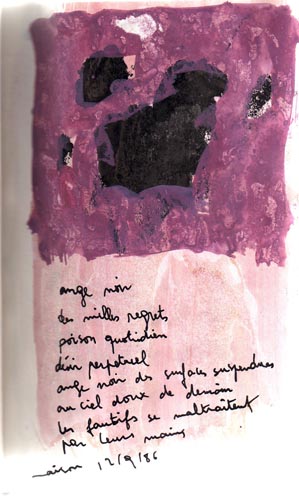 ange noir
des milles regrets
poison quotidien
désir perpetuel
ange noir des surfaces suspendues
au ciel doux de demain
les fautifs se maltraîtent
par leurs mains
12/9/86